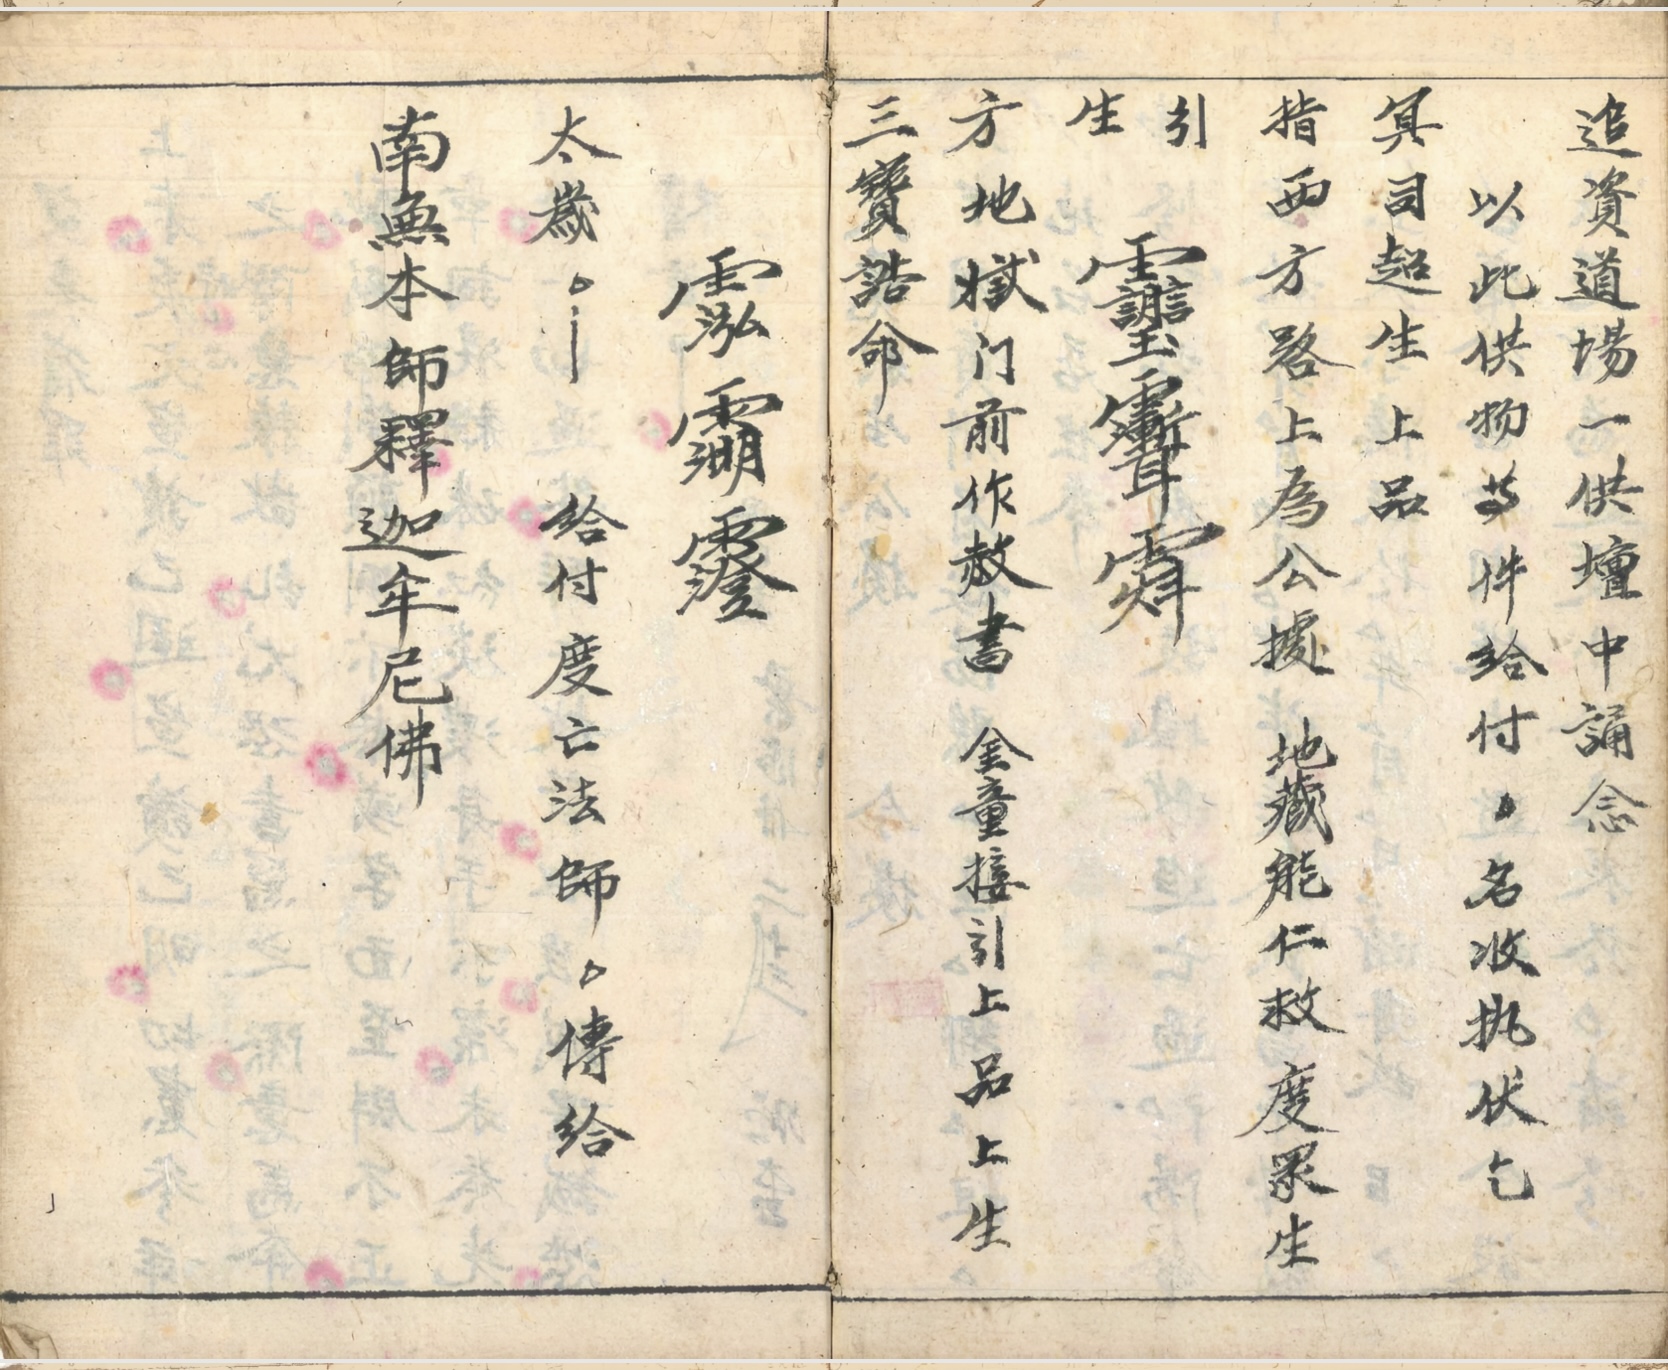 追資道場一供壇中誦念
以此供物等件給付名收执伏乞
冥司超生上品
指西方路上為公據 地藏能仁救度眾生
引
生
方地獄门前作赦書 金童接引上品上生
三寶誥命
太歲
給付度亡法師傳給
南無本師釋迦牟尼佛